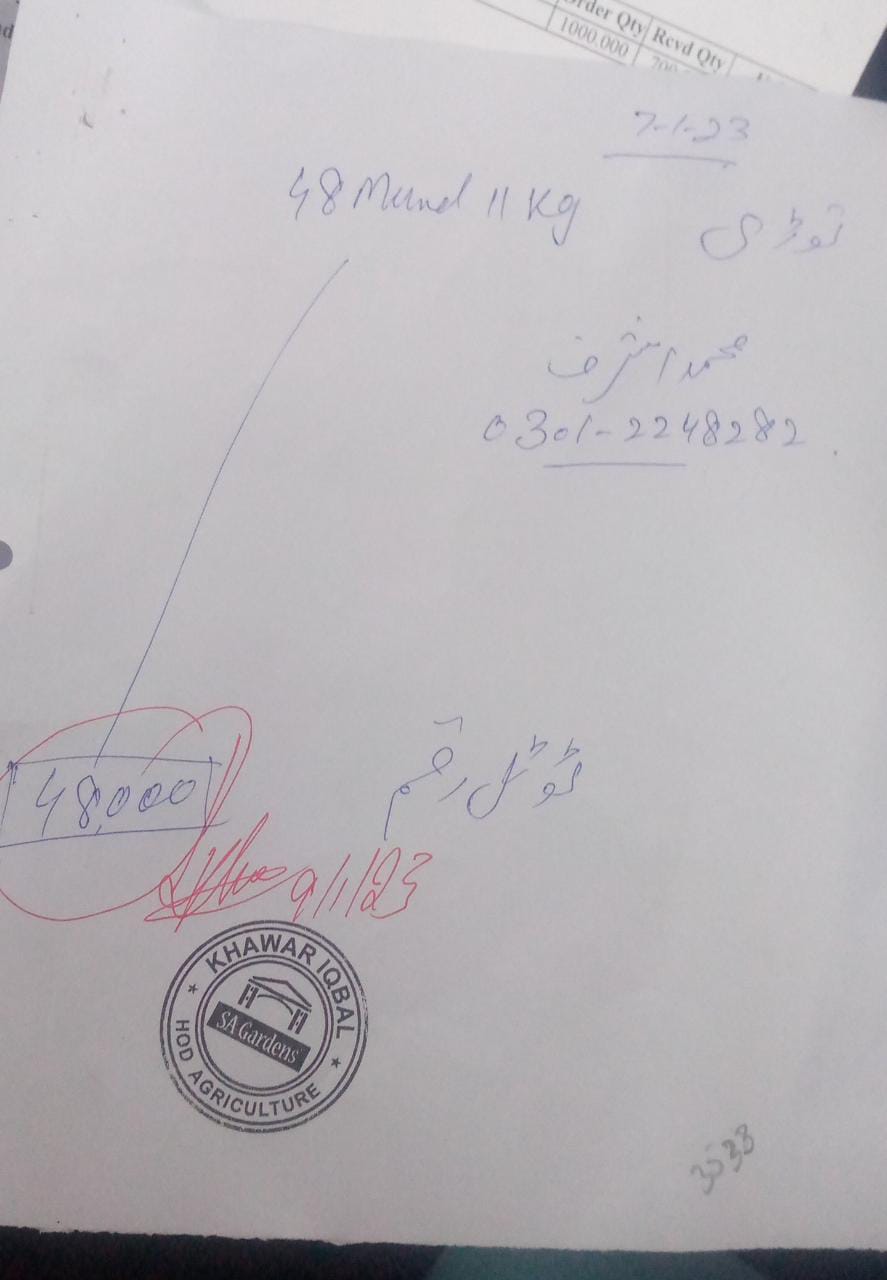 Order Qty Rcvd Qty
1000.000 700
7-1-23
48 Mund 11 Kg
توڑی
محمد اشرف
0301-2248282
ٹوٹل رقم
48,000
9/1/23
KHAWAR IQBAL
SA Gardens
HOD AGRICULTURE
3538